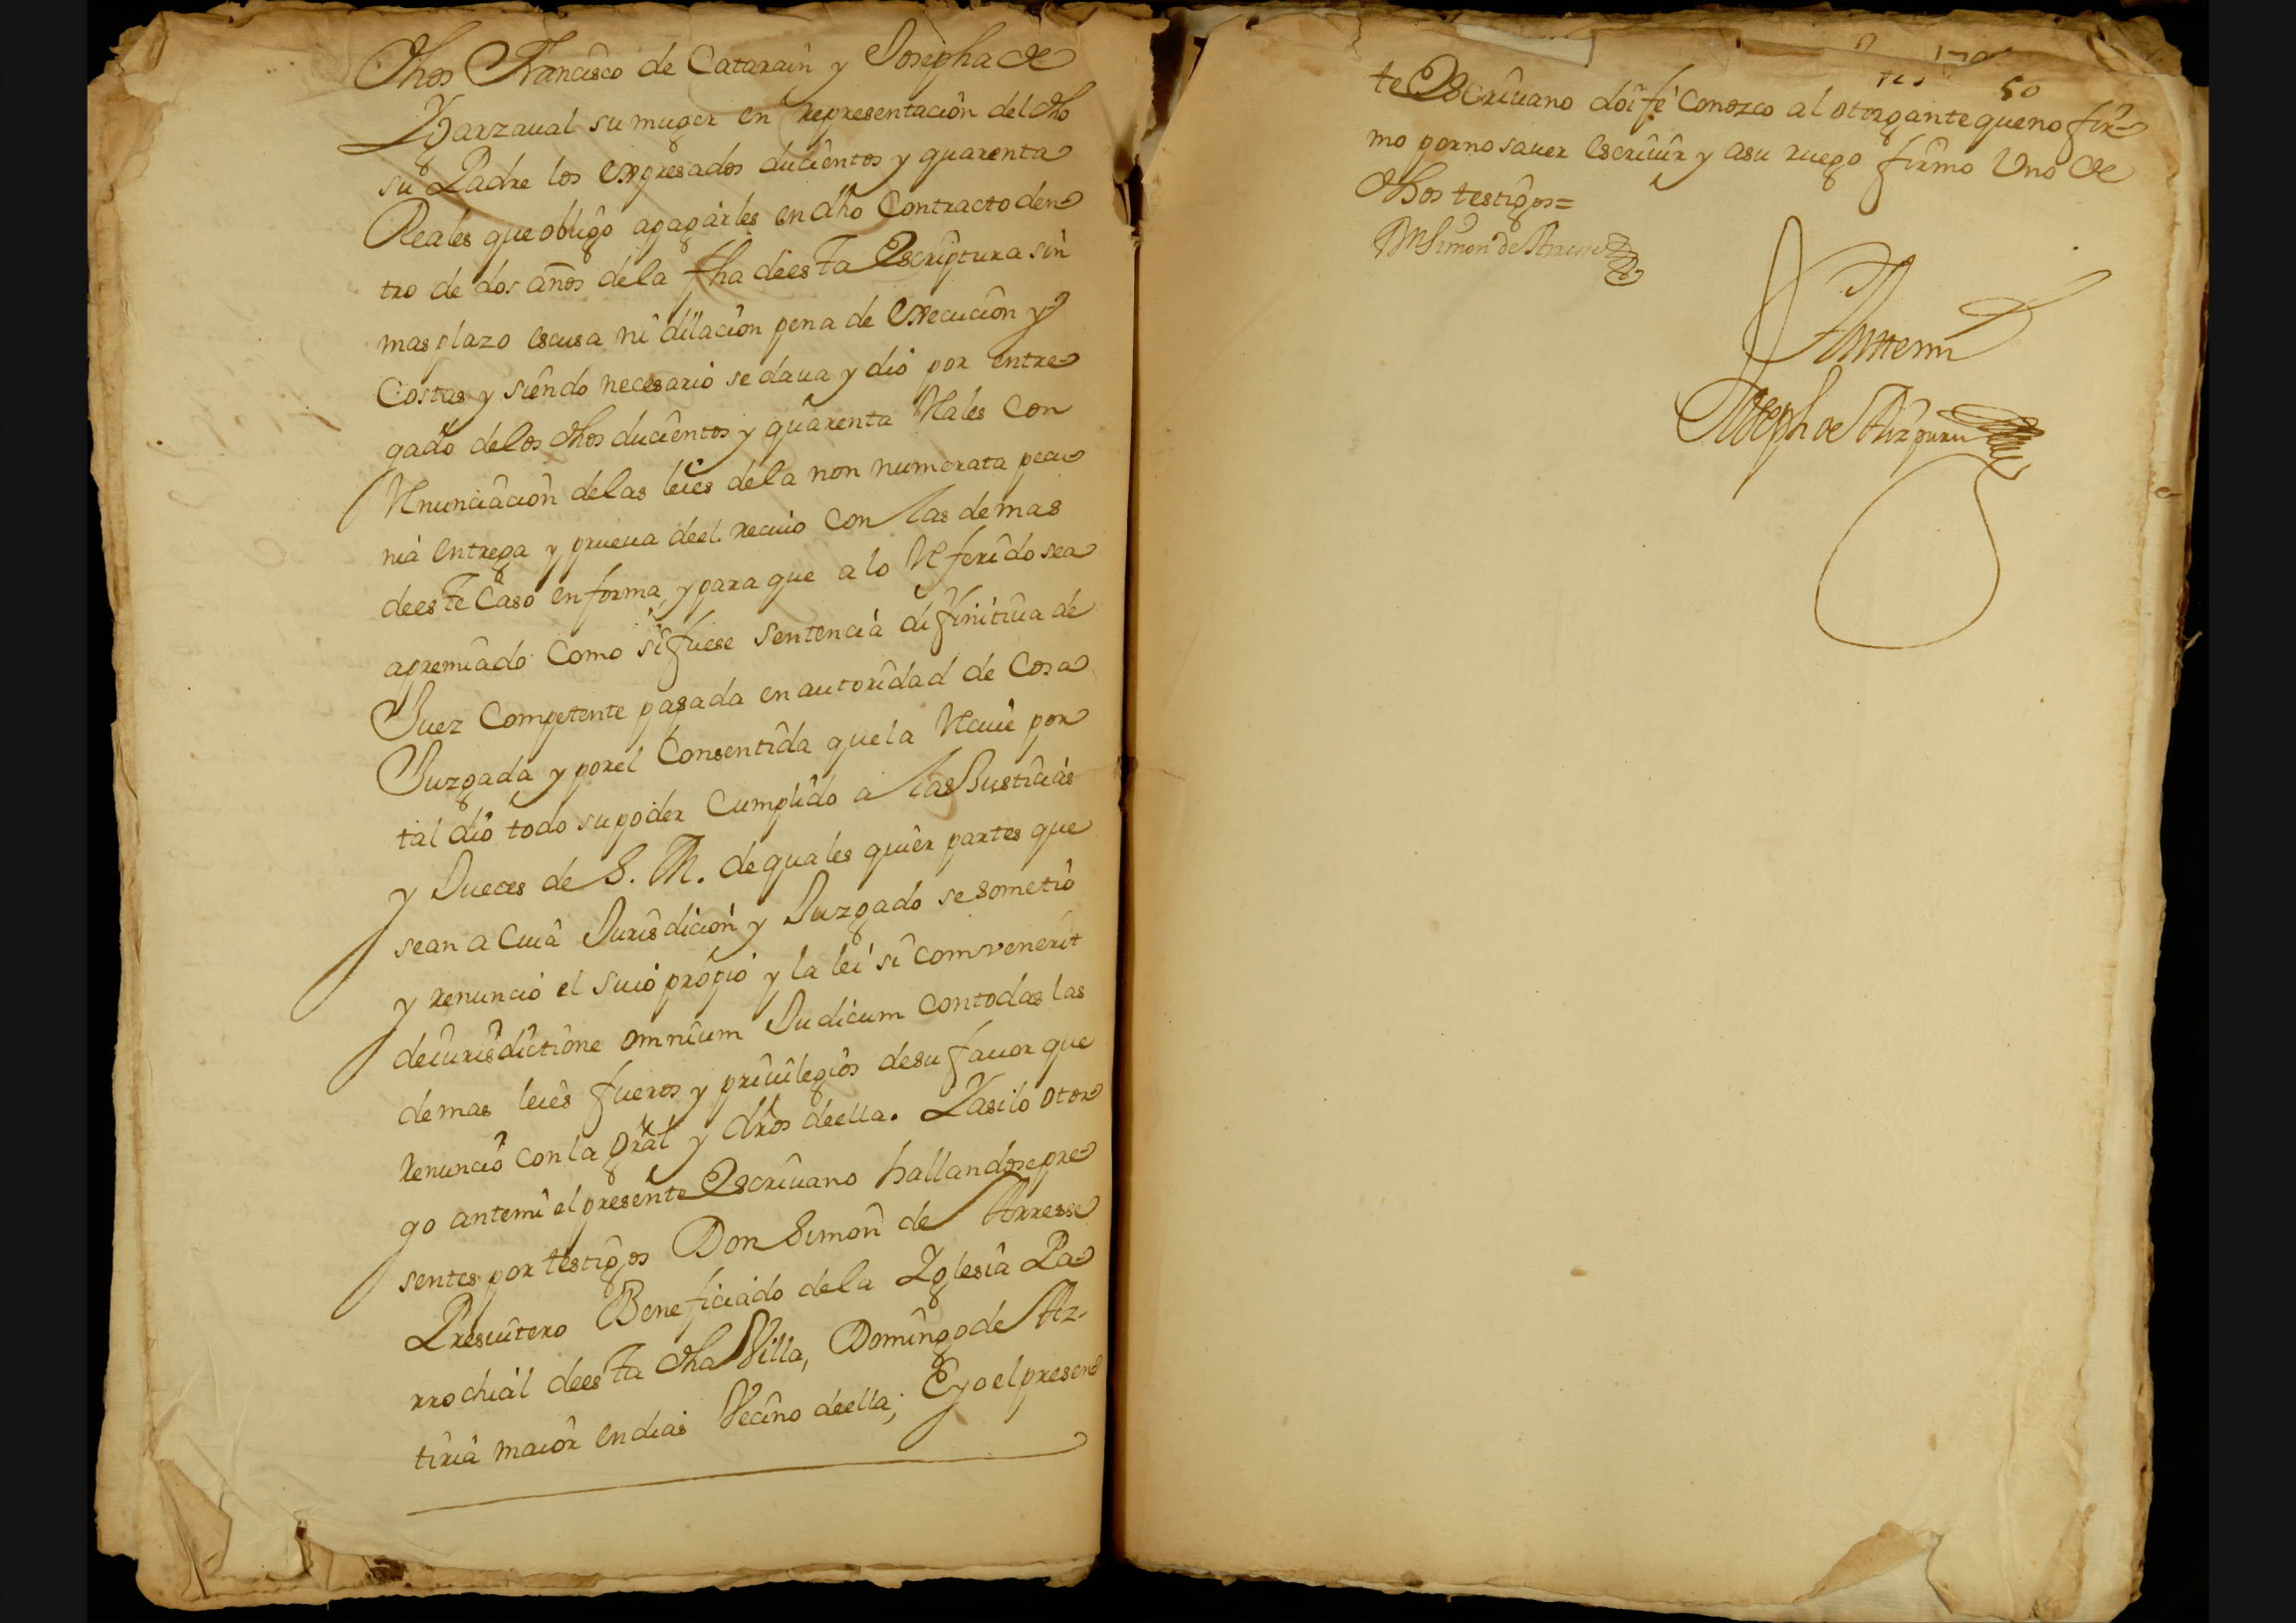 dhos Francisco de Catarain y Josepha de
Yarzaual su muger en representacion del dho
su Padre los expresados ducientos y quarenta
Reales que obligo a pagarles en dho Contracto den-
tro de dos años de la fha de esta Escriptura sin
mas plazo escusa ni dilacion pena de execucion y
Costas y siendo necesario se daua y dio por entre-
gado de los dhos ducientos y quarenta Reales con
Renunciacion de las leies de la non numerata pecu-
nia entrega y prueua de el reciuo con las demas
de este caso en forma, y para que a lo Referido sea
apremiado como si fuese sentencia difinitiua de
Juez Competente pasada en autoridad de Cosa
Juzgada y por el Consentida que la Reciue por
tal dio todo su poder Cumplido a las Justicias
y Jueces de S. M. de quales quier partes que
sean a cuia Jurisdicion y Juzgado se sometio
y renuncio el suio propio y la lei si comvenerit
de iurisdictione omnium Judicum con todas las
demas leies fueros y priuilegios de su fauor que
Renuncio con la gral y dros de ella. Y asi lo otor-
go ante mi el presente Escriuano hallandose pre-
sentes por testigos Don Simon de Arresse
Presuitero Beneficiado de la Yglesia Pa-
rrochial de esta dha Villa, Domingo de Az-
tiria maior en dias Vecino de ella; E yo el presen-
50
te Escriuano doi fe conozco al otorgante que no fir-
mo por no sauer escriuir y a su ruego firmo Uno de
dhos testigos=
Dn Simon de Arresse
Ante mi
Joseph de Aizpuru